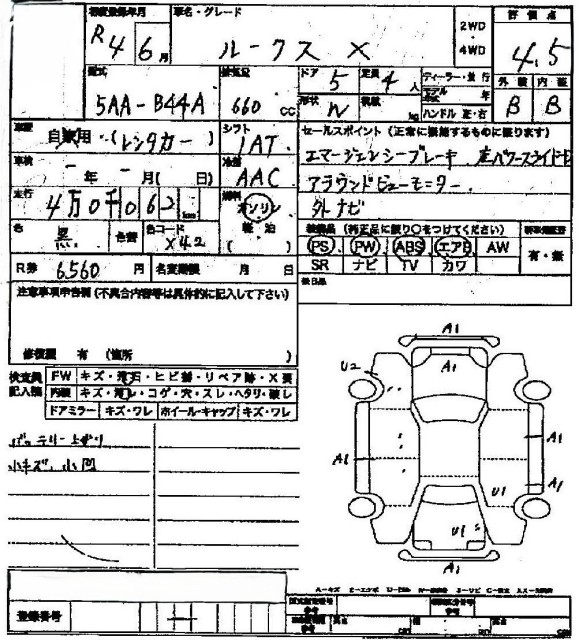 初度登録年月 車名・グレード 評価点
R4 6月 ルークス X 2WD・4WD 4.5
型式 排気量 ドア 5 定員 4人 ディーラー・並行 外装 内装
5AA-B44A 660 CC 形状 積載 kg モデル年式 年 ハンドル 右・左 B B
車歴 自家用・(レンタカー) シフト IAT セールスポイント(正常に機能するものに限ります)
車検 年 月( 日) 冷房 AAC エマージェンシーブレーキ 左パワースライドドア
走行 4万0千062km 燃料 ガソリン 軽油 アラウンドビューモニター
外ナビ
色 黒 色替 色コード X42 装備品(純正品に限り○をつけてください)
PS PW ABS エアB AW 有・無
R券 6,560円 名変期限 月 日 SR ナビ TV カワ
注意事項申告欄(不具合内容等は具体的に記入して下さい) 後日品
修復歴 有(箇所 )
検査員記入欄 FW キズ・飛石・ヒビ割・リペア跡・X要
内装 キズ・汚レ・コゲ・穴・スレ・ヘタリ・破レ
ドアミラー キズ・ワレ ホイール・キャップ キズ・ワレ
バッテリー上がり
小キズ、小凹
A1
U2 A1
A1 A1
U1 A1
U1
A1
登録番号